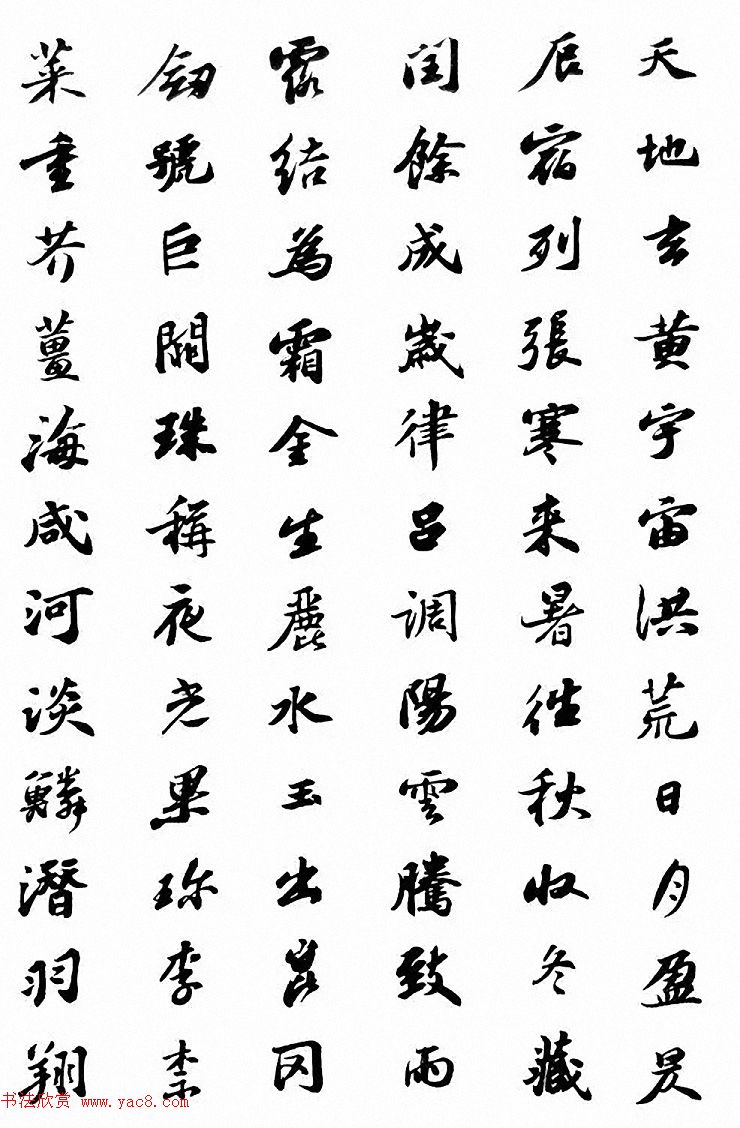 天地玄黄宇宙洪荒日月盈昃
辰宿列張寒来暑往秋收冬藏
閏餘成歲律呂調陽雲騰致雨
露結為霜金生麗水玉出崑岡
劒號巨闕珠稱夜光果珎李柰
菜重芥薑海咸河淡鱗潛羽翔
书法欣赏 www.yac8.com